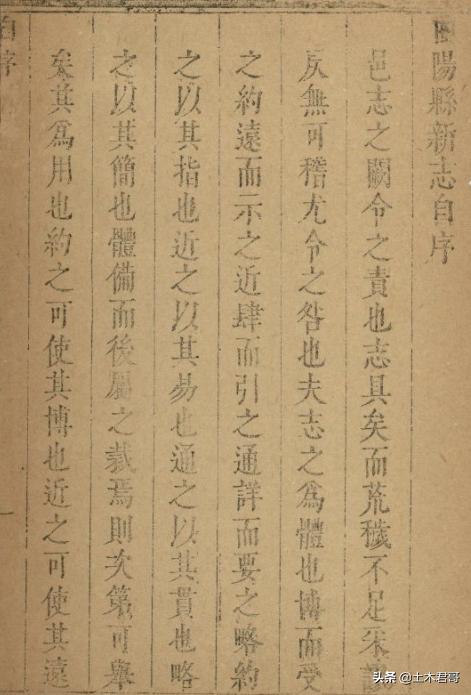 陽縣新志自序
邑志之闕令之責也志具矣而荒穢不足采
反無可稽尤令之咎也夫志之為體也博而受
之約遠而示之近肆而引之通詳而要之略約
之以其指也近之以其易也通之以其貫也略
之以其簡也體備而後屬之裁焉則次第可舉
矣其為用也約之可使其博也近之可使其遠
自序
头条 @土木君哥